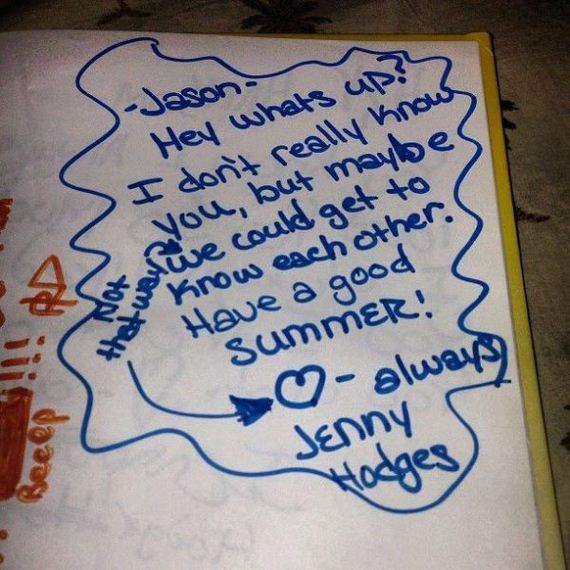 -Jason-
Hey whats up?
I don't really know
you, but maybe
we could get to
know each other.
Have a good
summer!
♡- always
Jenny
Hodges
Not
that way